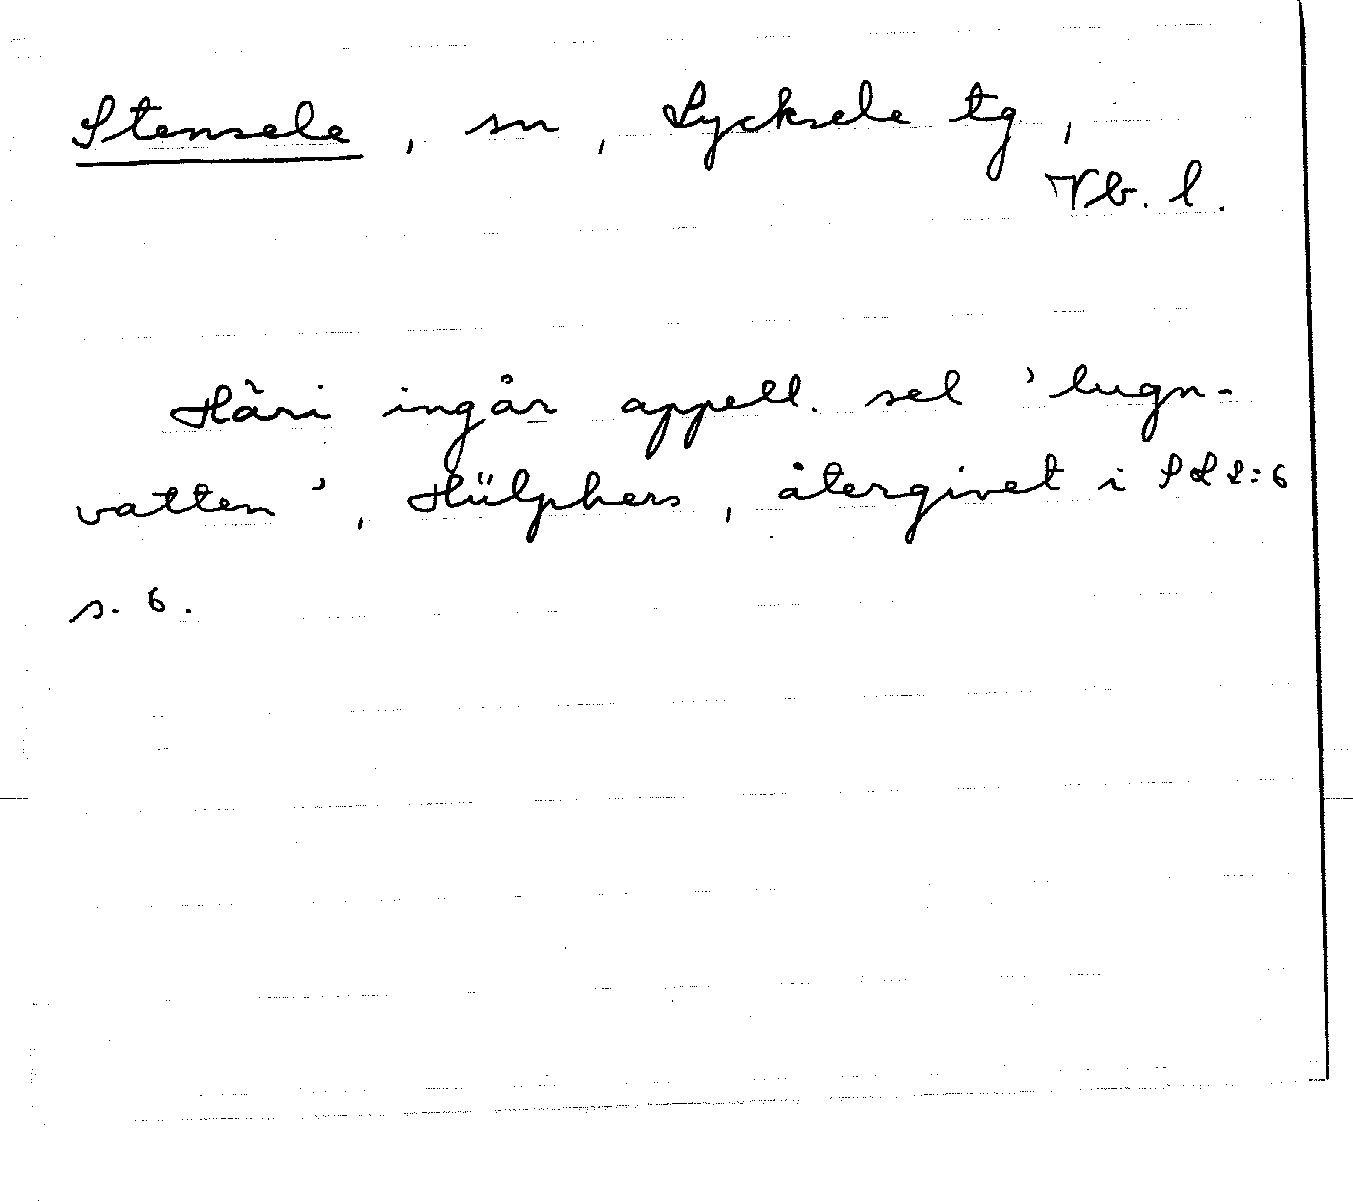 Stensele, sn, Lycksele tg,
Vb. l.
Häri ingår appell. sel 'lugn-
vatten', Hülphers, återgivet i SL 2:6
s. 6.